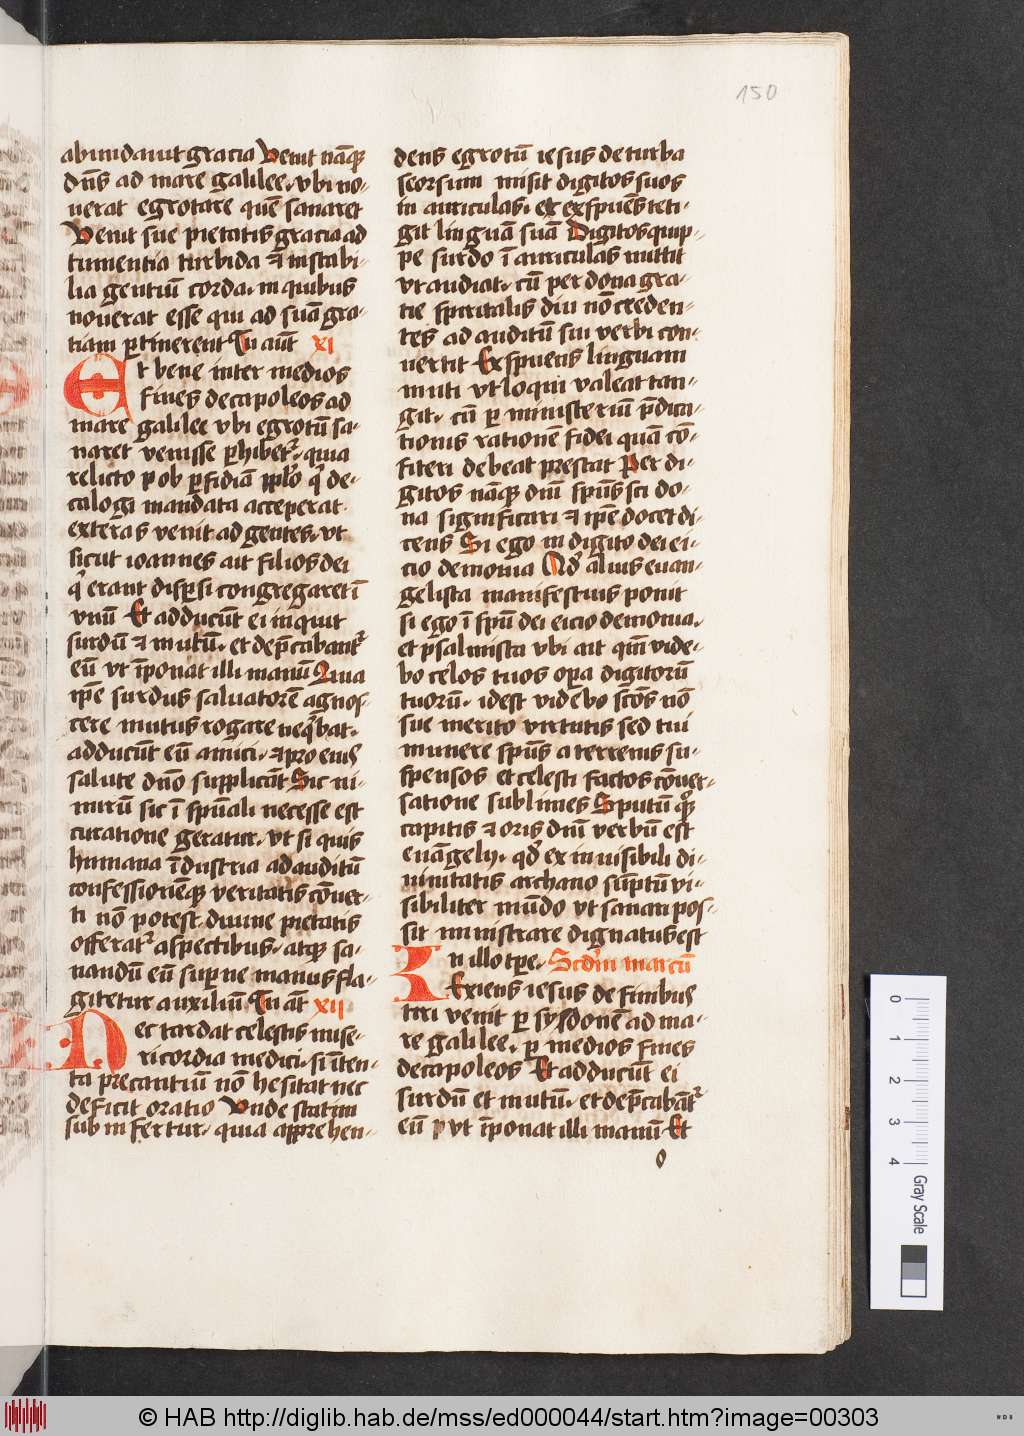 150
abundauit gracia Venit nāqꝫ
dn̄s ad mare galilee. vbi no-
uerat egrotare quē sanaret
Venit sue pietatis gracia ad
tumentia turbida ⁊ instabi-
lia gentiū corda. in quibus
nouerat esse qui ad suā gra-
tiam ꝑtinerent Tu aūt xi
Et bene inter medios
fines decapoleos ad
mare galilee vbi egrotū sa-
naret venisse ꝑhibetʳ. quia
relicto p ob ꝑfidiā ppl̄o qͥ de-
calogi mandata acceperat
exteras venit ad gentes. vt
sicut ioannes ait filios dei
qͥ erant disꝑsi congregaret ī
vnū Et adducūt ei inquit
surdū ⁊ mutū. et dep̄cabantʳ
eū vt īponat illi manū Quia
ip̄e surdus saluatorē agnos-
cere mutus rogare neqͥbat.
adducūt eū amici. ⁊ pro eius
salute dn̄o supplicāt Sic ni-
mirū sic ī spūali necesse est
curatione geratur. vt si quis
humana īdustria ad auditū
confessionēqꝫ veritatis cōuer-
ti nō potest diuine pietatis
offeratʳ aspectibus. atqꝫ sa-
nandū eū superne manus fla-
gitetur auxiliū Tu aūt xii
Nec tardat celestis mise-
ricordia medici. si īten-
ta precantiū nō hesitat nec
deficit oratio Vnde statim
sub infertur. quia apprehen-
dens egrotū iesus de turba
seorsum misit digitos suos
in auriculas. et exspuēs teti-
git linguā suā Digitos quip-
pe surdo ī auriculas mittit
vt audiat. cū per dona gra-
tie spiritalis diu nō creden-
tes ad auditū sui verbi con-
uertit Exspuens linguam
muti vt loqui valeat tan-
git. cū ꝑ ministeriū p̄dica-
tionis rationē fidei quā cō-
fiteri debeat prestat Per di-
gitos nāqꝫ dn̄i spūs sc̄i do-
na significari ⁊ ip̄e docet di-
cens Si ego in digito dei ei-
cio demonia Qd̄ alius euan-
gelista manifestius ponit
si ego ī spū dei eicio demonia.
et psalmista vbi ait qm̄ vide-
bo celos tuos oꝑa digitorū
tuorū. idest videbo sc̄os nō
sue merito virtutis sed tui
munere spūs a terrenis su-
spensos et celesti factos cōuer-
satione sublimes Sputū qͦꝫ
capitis ⁊ oris dn̄i verbū est
euāgelij. qd̄ ex inuisibili di-
uinitatis archano sūptū vi-
sibiliter mūdo vt sanari pos-
sit ministrare dignatus est
In illo tꝑe. Scd̄m marcū
Exiens iesus de finibus
tiri venit ꝑ sydonē ad ma-
re galilee. ꝑ medios fines
decapoleos Et adducūt ei
surdū et mutū. et dep̄cabātʳ
eū p vt īponat illi manū Et
0
1
2
3
4
Gray Scale
© HAB http://diglib.hab.de/mss/ed000044/start.htm?image=00303
WDB